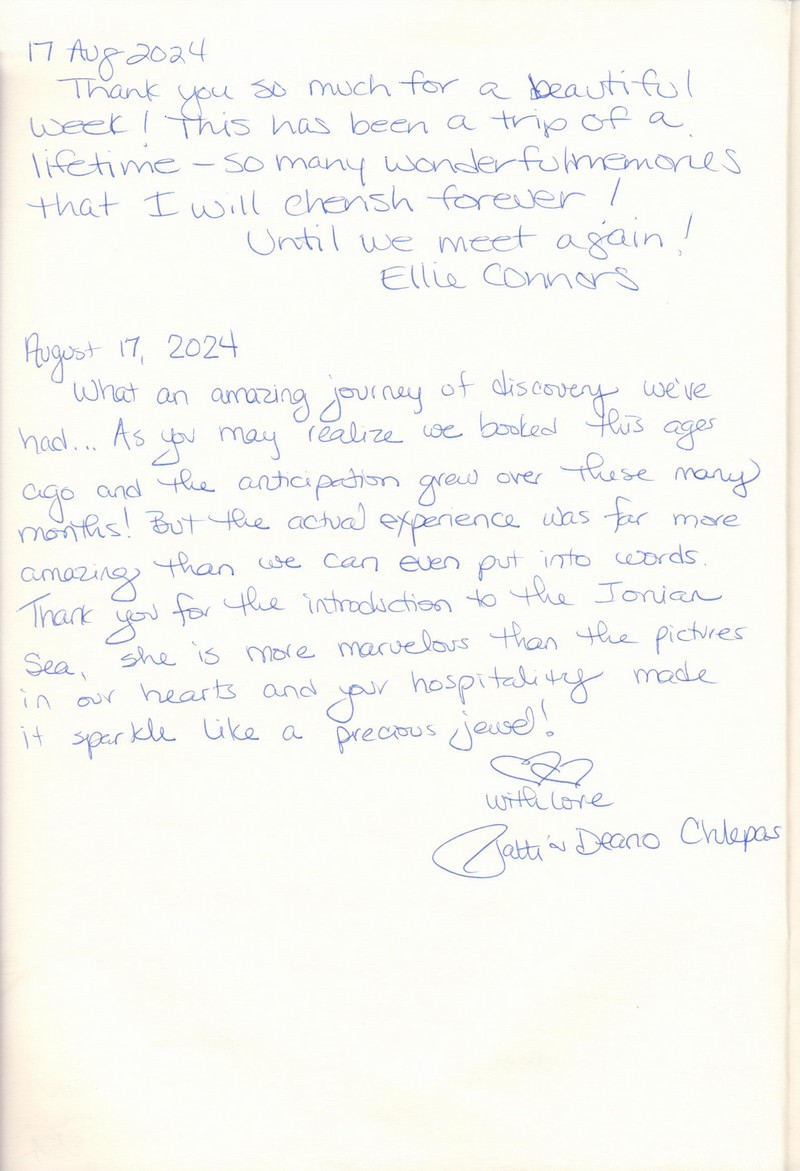 17 Aug 2024
Thank you so much for a beautiful
week! This has been a trip of a
lifetime – so many wonderful memories
that I will cherish forever!
Until we meet again!
Ellie Connors
August 17, 2024
What an amazing journey of discovery we've
had... As you may realize we booked this ages
ago and the anticipation grew over these many
months! But the actual experience was far more
amazing than we can even put into words.
Thank you for the introduction to the Ionian
Sea, she is more marvelous than the pictures
in our hearts and your hospitality made
it sparkle like a precious jewel!
with love
Patti & Deano Chlepas